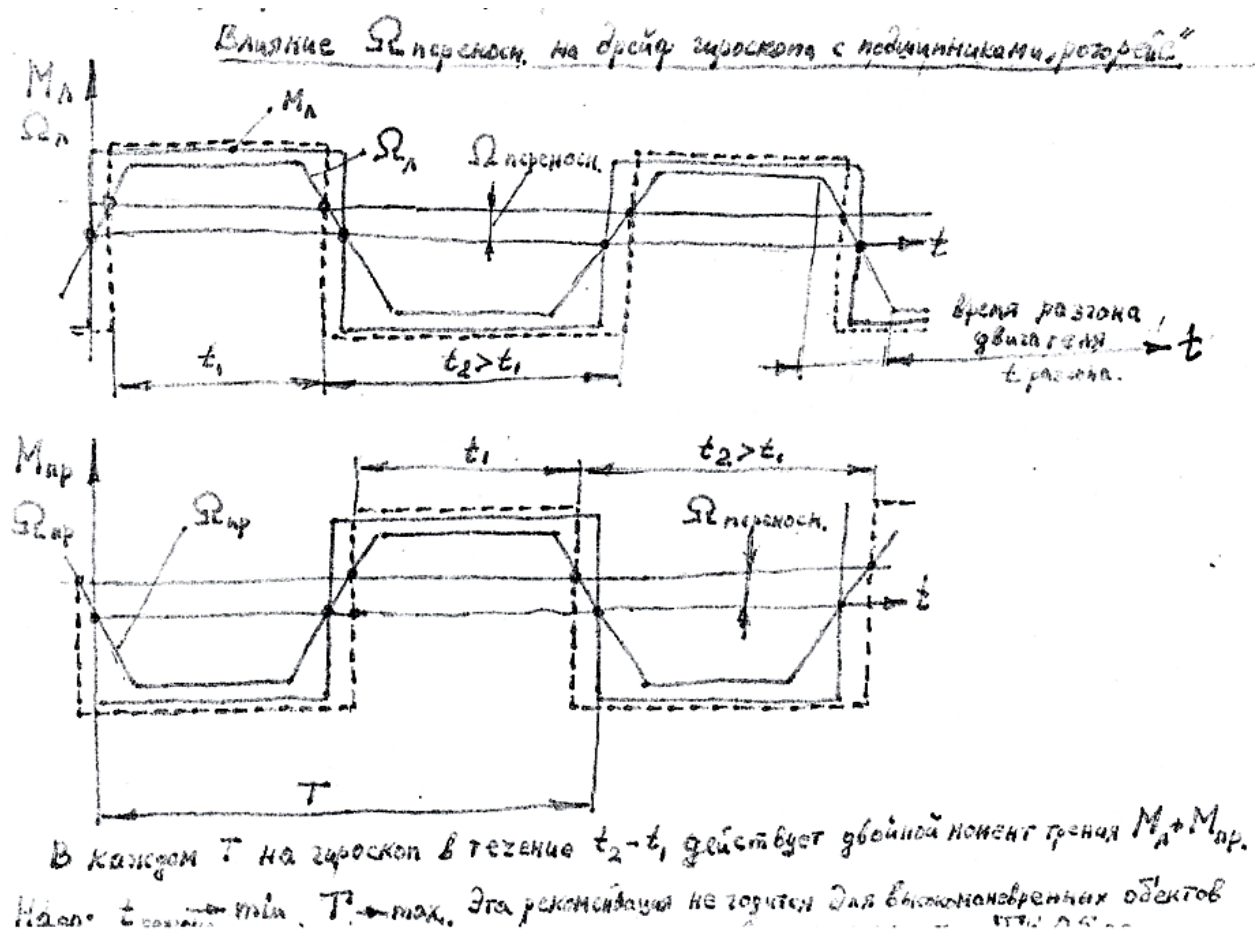 Влияние Ω переносн. на дрейф гироскопа с подшипниками „роторейс"
Mл
Ωл
Mл
Ωл
Ω переносн.
t
t₁
t₂>t₁
время разгона
двигателя
t разгона.
t
Mпр
Ωпр
Ωпр
t₁
t₂>t₁
Ω переносн.
t
T
В каждом T на гироскоп в течение t₂-t₁ действует двойной момент трения Mл+Mпр.
t min. T max. Эта рекомендация не годится для высокоманевренных объектов